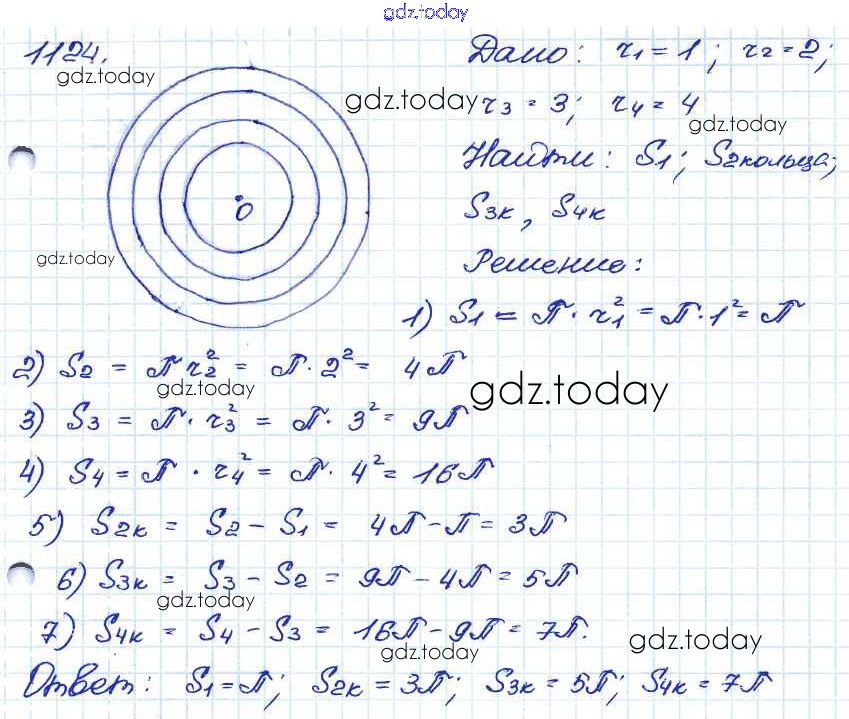 gdz.today
1124.
Дано: r₁ = 1; r₂ = 2;
gdz.today
gdz.today
r₃ = 3; r₄ = 4
gdz.today
Найти: S₁; S₂кольца;
O
S₃к, S₄к
gdz.today
Решение:
1) S₁ = π · r₁² = π · 1² = π
2) S₂ = π r₂² = π · 2² = 4π
gdz.today
gdz.today
3) S₃ = π · r₃² = π · 3² = 9π
4) S₄ = π · r₄² = π · 4² = 16π
5) S₂к = S₂ – S₁ = 4π – π = 3π
6) S₃к = S₃ – S₂ = 9π – 4π = 5π
gdz.today
7) S₄к = S₄ – S₃ = 16π – 9π = 7π.
gdz.today
gdz.today
Ответ: S₁ = π; S₂к = 3π; S₃к = 5π; S₄к = 7π